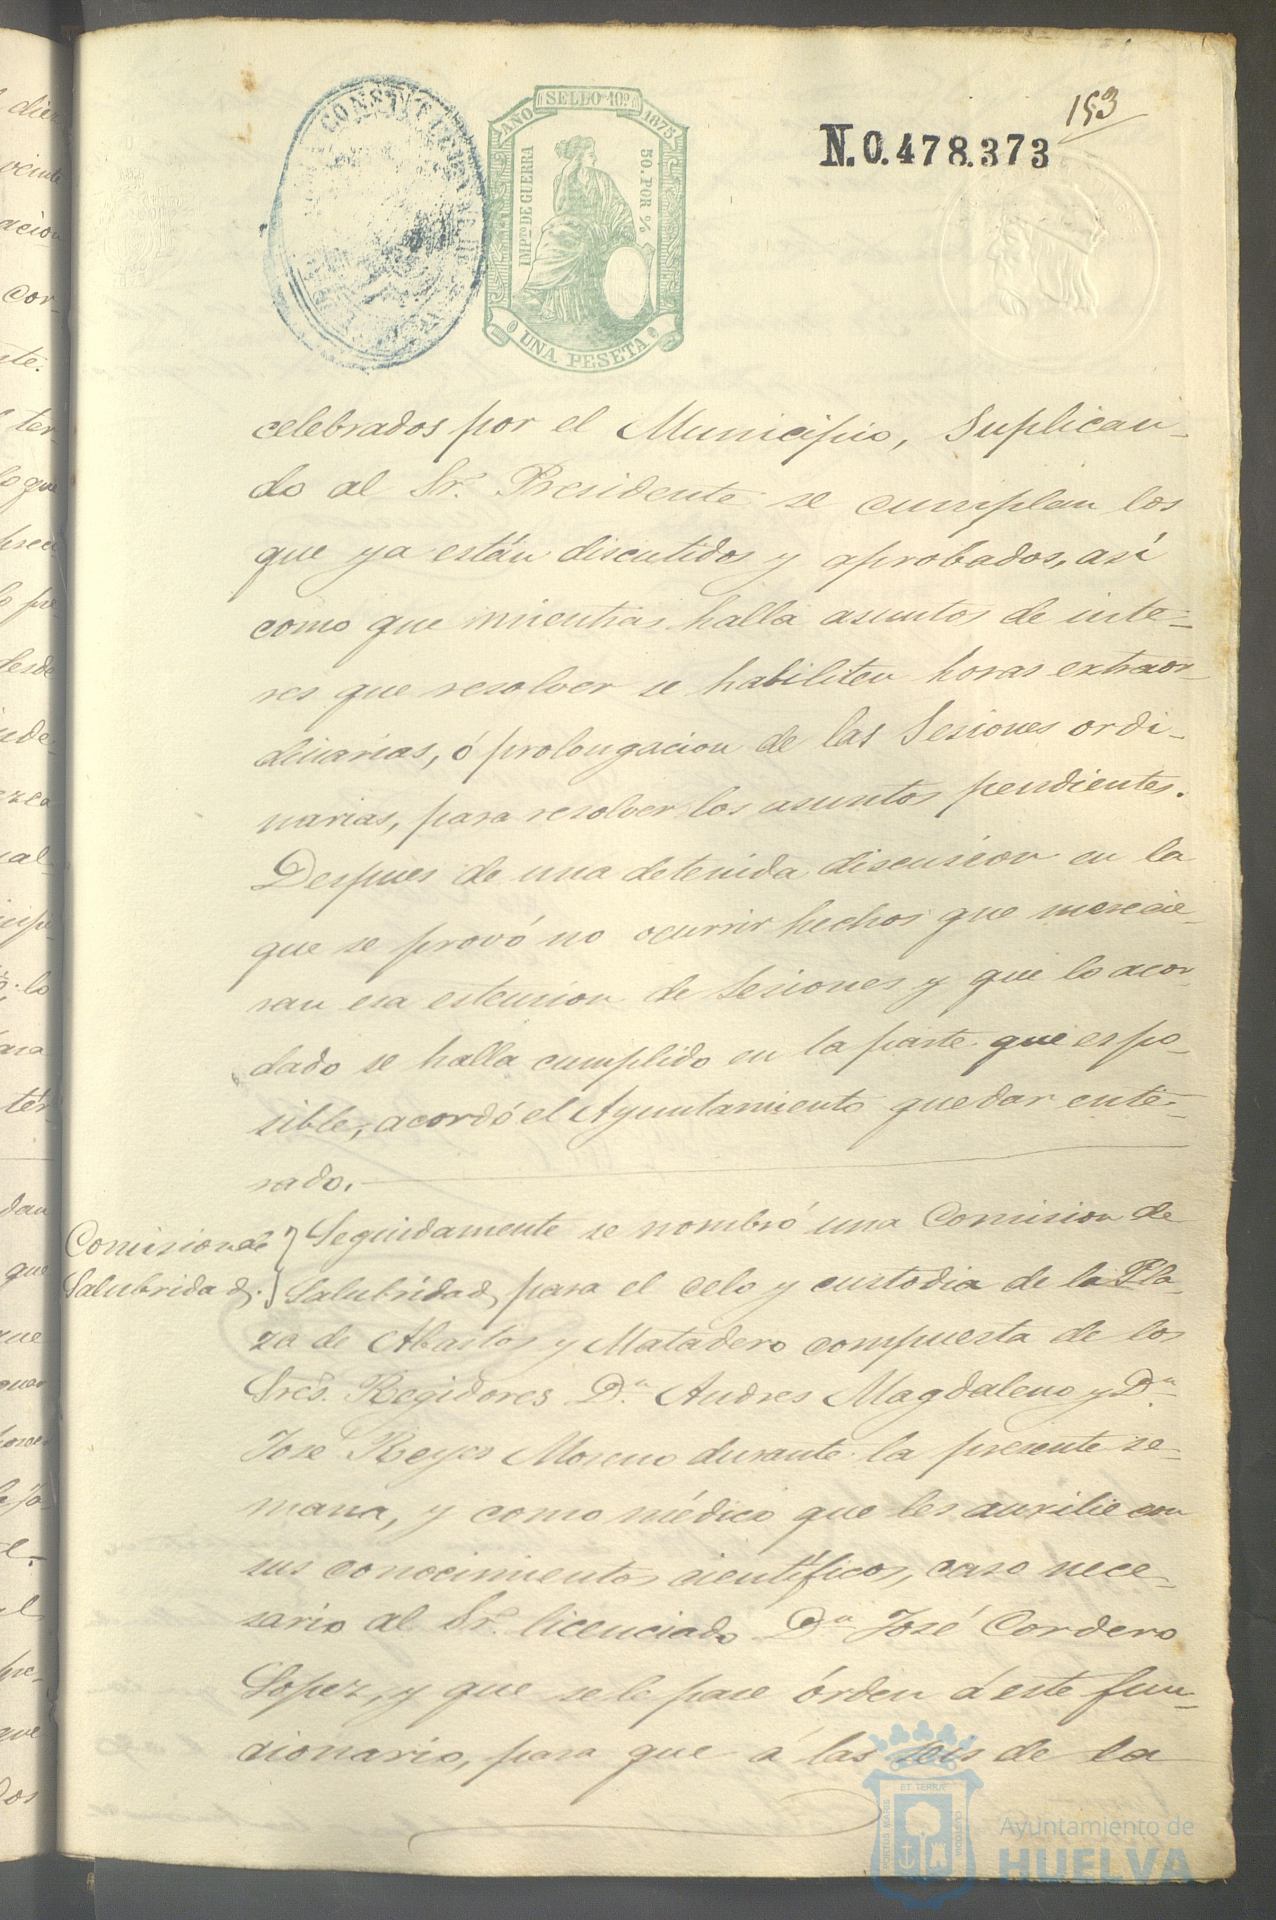 153
N. 0.478.373
CONSTIT
SELLO 10º
AÑO 1875
IMPTO DE GUERRA
50. POR %
UNA PESETA
celebrados por el Municipio, Suplican-
do al Sr. Presidente se cumplan los
que ya están discutidos y aprobados, así
como que mientras halla asuntos de inte-
res que resolver se habiliten horas extraor-
dinarias, ó prolongacion de las Sesiones ordi-
narias, para resolver los asuntos pendientes.
Despues de una detenida discusion en la
que se provó no ocurrir hechos que merecie-
ran esa estension de Sesiones y que lo acor-
dado se halla cumplido en la parte que es po-
sible, acordó el Ayuntamiento quedar ente-
rado.
Comision de
Salubridad.
Seguidamente se nombró una Comision de
Salubridad, para el celo y custodia de la Pla-
za de Abastos y Matadero compuesta de los
Sres. Regidores Dn. Andres Magdaleno y Dn.
José Reyes Moreno durante la presente se-
mana, y como médico que les auxilie con
sus conocimientos científicos, caso nece-
sario al Sr. licenciado Dn José Cordero
Lopez, y que se le pase órden á este fun-
cionario, para que á las seis de la
ET TERRÆ
PORTUS MARIS
CUSTODIA
Ayuntamiento de
HUELVA